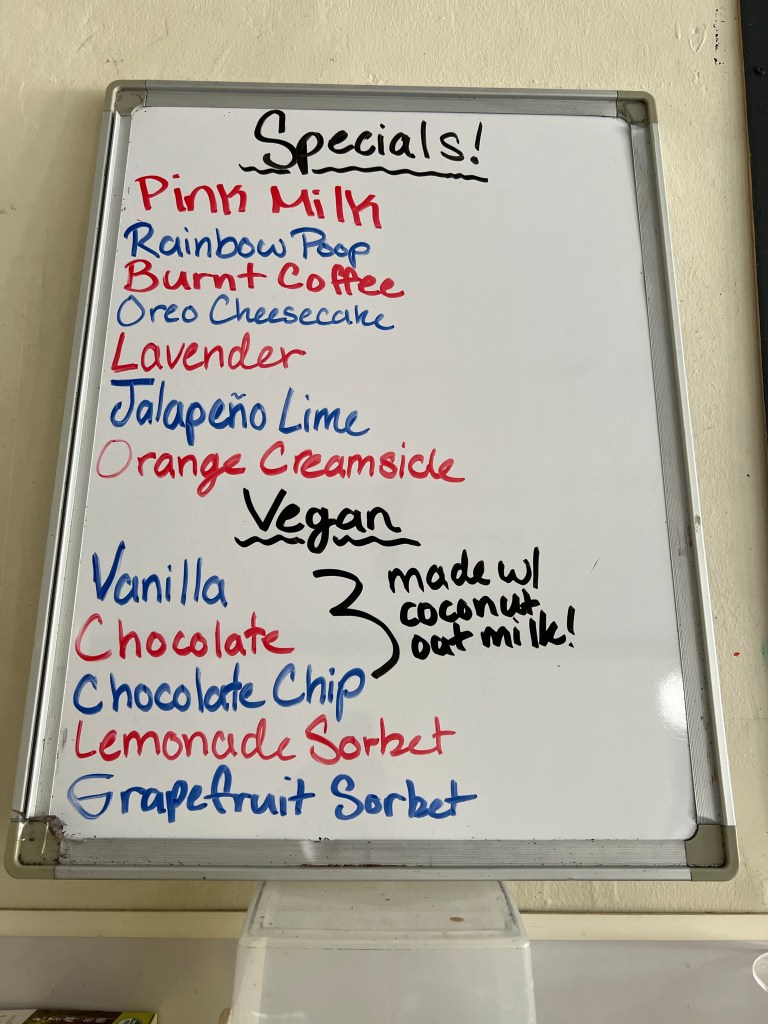 Specials!
Pink Milk
Rainbow Poop
Burnt Coffee
Oreo Cheesecake
Lavender
Jalapeño Lime
Orange Creamsicle
Vegan
Vanilla
Chocolate
Chocolate Chip
made w/
coconut
oat milk!
Lemonade Sorbet
Grapefruit Sorbet